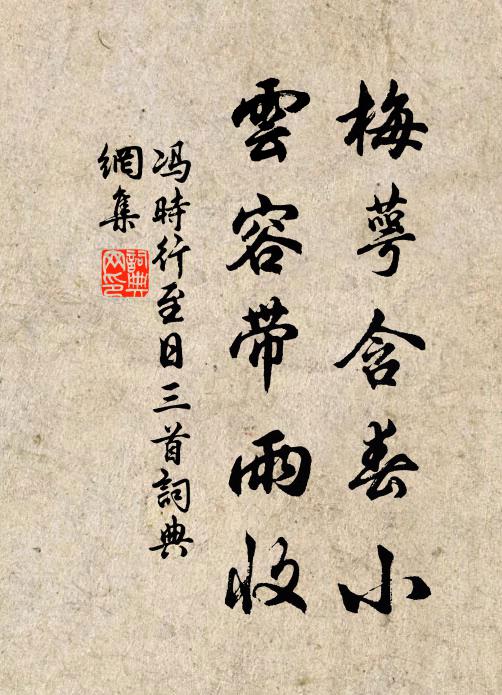 梅萼含春小
雲容帶雨收
冯時行至日三首詞典
網集
詞典
网印